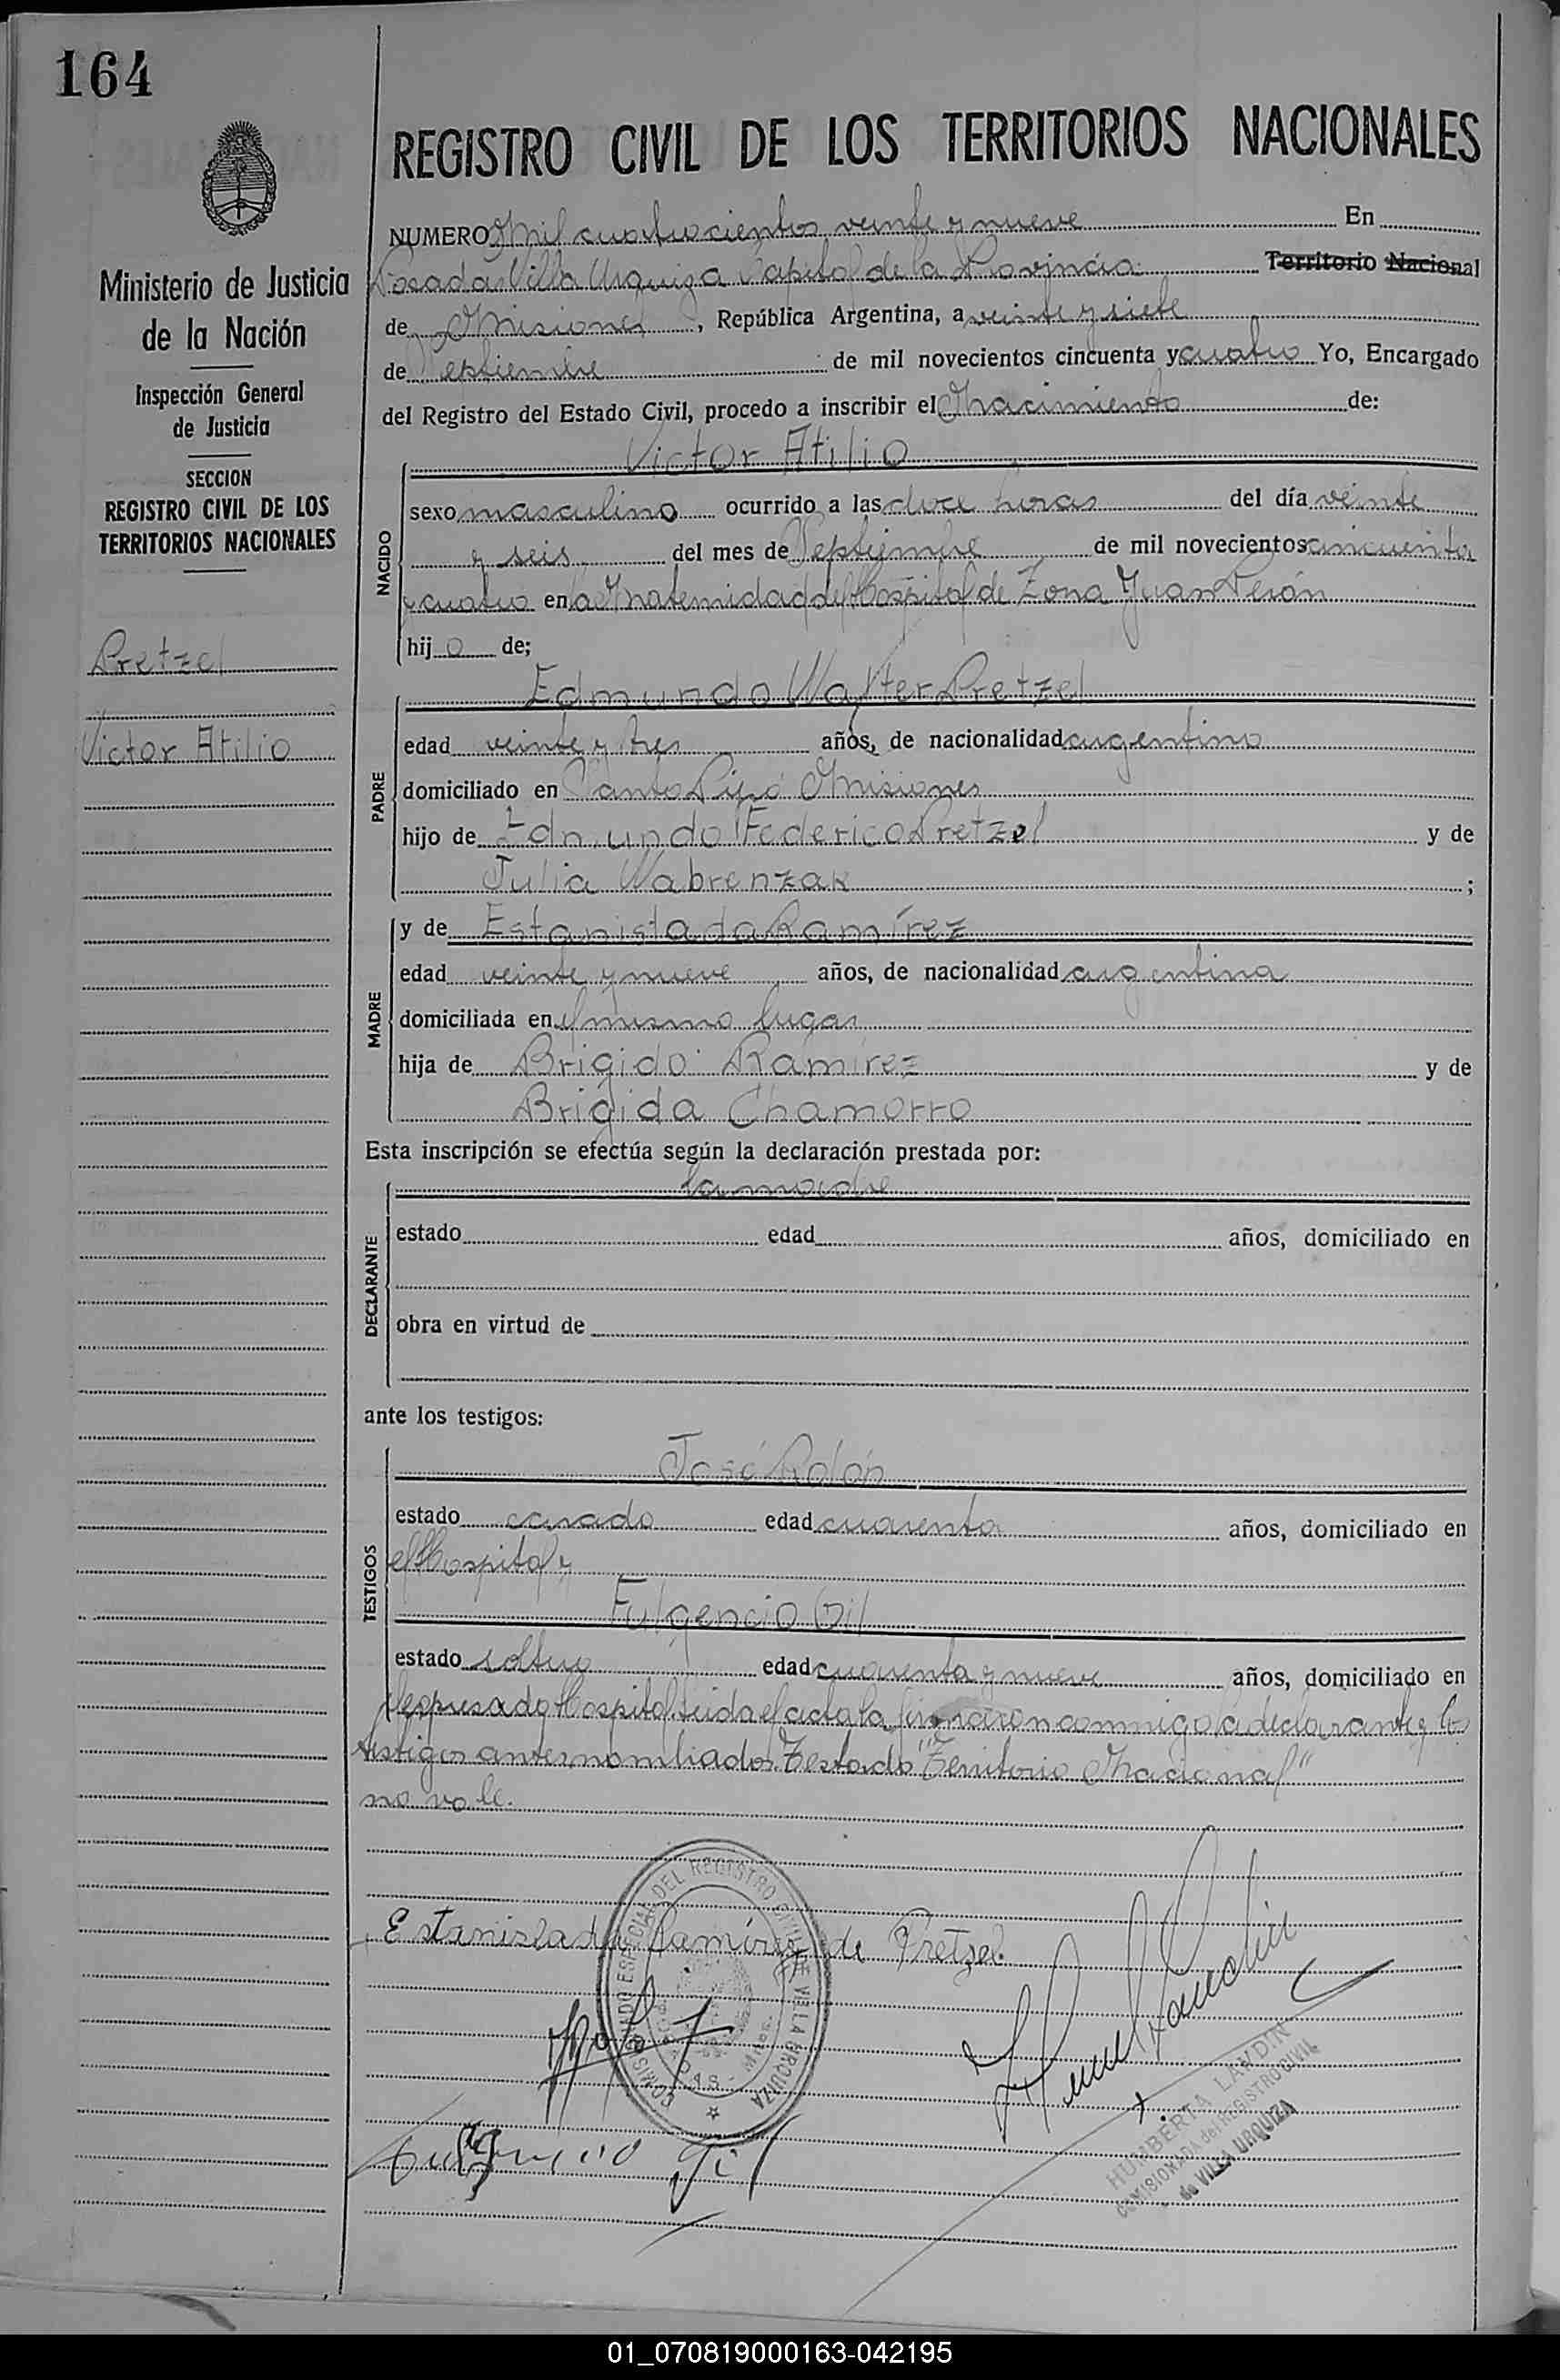 164
REGISTRO CIVIL DE LOS TERRITORIOS NACIONALES
Ministerio de Justicia
de la Nación
Inspección General
de Justicia
SECCION
REGISTRO CIVIL DE LOS
TERRITORIOS NACIONALES
Pretzel
Victor Atilio
NUMERO Mil cuatrocientos veinte y nueve En
Posadas Villa Urquiza Capital de la Provincia Territorio Nacional
de Misiones, República Argentina, a veinte y siete
de Septiembre de mil novecientos cincuenta y cuatro Yo, Encargado
del Registro del Estado Civil, procedo a inscribir el Nacimiento de:
NACIDO
Victor Atilio
sexo masculino ocurrido a las doce horas del día veinte
y seis del mes de Septiembre de mil novecientos cincuenta
y cuatro en la Maternidad del Hospital de Zona Juan Perón
hijo de;
PADRE
Edmundo Walter Pretzel
edad veinte y tres años, de nacionalidad argentino
domiciliado en Santo Pipó Misiones
hijo de Edmundo Federico Pretzel y de
Julia Wabrenzak ;
MADRE
y de Estanislada Ramírez
edad veinte y nueve años, de nacionalidad argentina
domiciliada en el mismo lugar
hija de Brigido Ramírez y de
Brigida Chamorro
Esta inscripción se efectúa según la declaración prestada por:
DECLARANTE
la madre
estado edad años, domiciliado en
obra en virtud de
ante los testigos:
TESTIGOS
José Rolón
estado casado edad cuarenta años, domiciliado en
el Hospital y
Fulgencio Gil
estado soltero edad cuarenta y nueve años, domiciliado en
el expresado Hospital. Leida el acta la firmaron conmigo la declarante y los
testigos antes nombrados. Testado "Territorio Nacional"
no vale.
Estanislada Ramírez de Pretzel
COMISIONADO ESPECIAL DEL REGISTRO CIVIL DE VILLA URQUIZA
Fulgencio Gil
HUMBERTA LANDIN
COMISIONADA del REGISTRO CIVIL
de VILLA URQUIZA
01_070819000163-042195